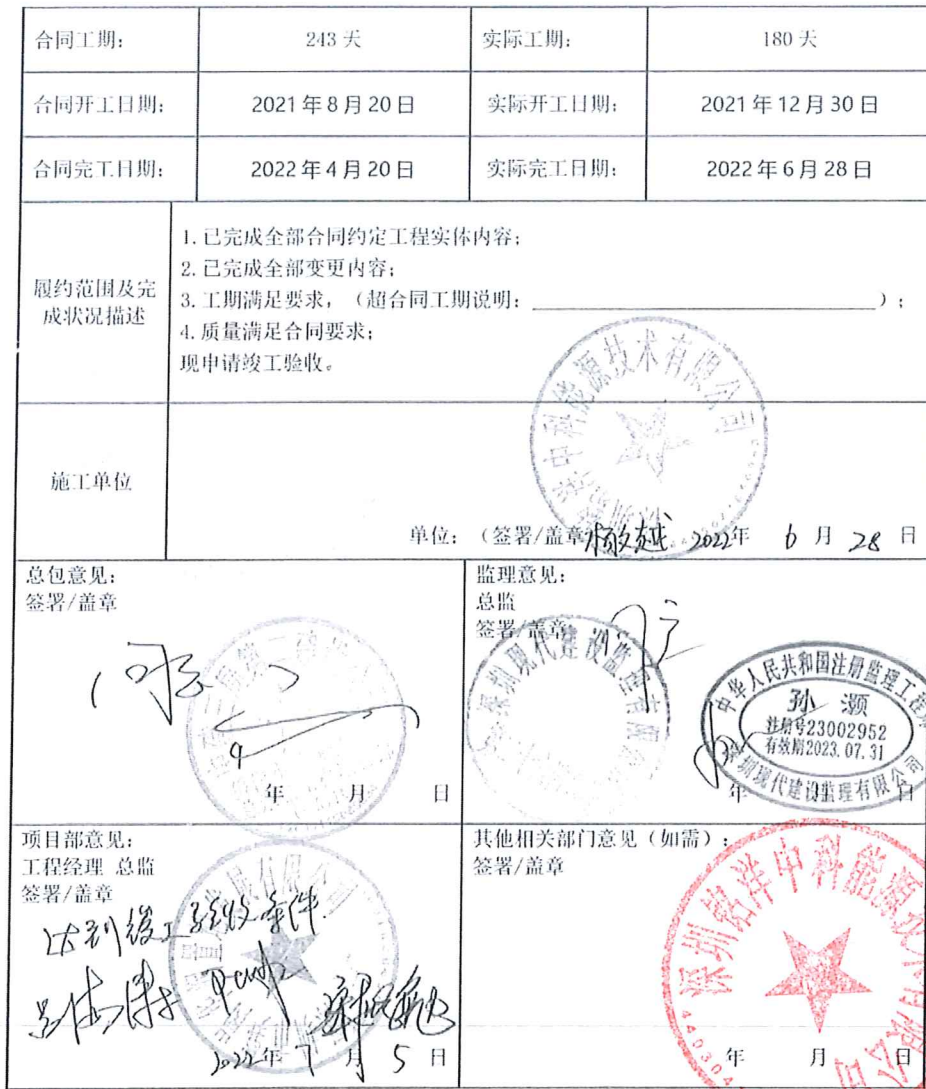 合同工期： 243 天 实际工期： 180 天
合同开工日期： 2021 年 8 月 20 日 实际开工日期： 2021 年 12 月 30 日
合同完工日期： 2022 年 4 月 20 日 实际完工日期： 2022 年 6 月 28 日
履约范围及完成状况描述
1. 已完成全部合同约定工程实体内容；
2. 已完成全部变更内容；
3. 工期满足要求，（超合同工期说明：）；
4. 质量满足合同要求；
现申请竣工验收。
施工单位
中科能源技术有限公司
单位：（签署/盖章 2022年 6 月 28 日
总包意见：
签署/盖章
年 月 日
监理意见：
总监
签署/盖章
深圳现代建设监理有限
中华人民共和国注册监理工程师
孙 灏
注册号23002952
有效期2023.07.31
深圳现代建设监理有限公司
年 月 日
项目部意见：
工程经理 总监
签署/盖章
达到竣工验收条件
2022年 7 月 5 日
其他相关部门意见（如需）：
签署/盖章
深圳铭洋中科能源技术有限公司
440304
年 月 日